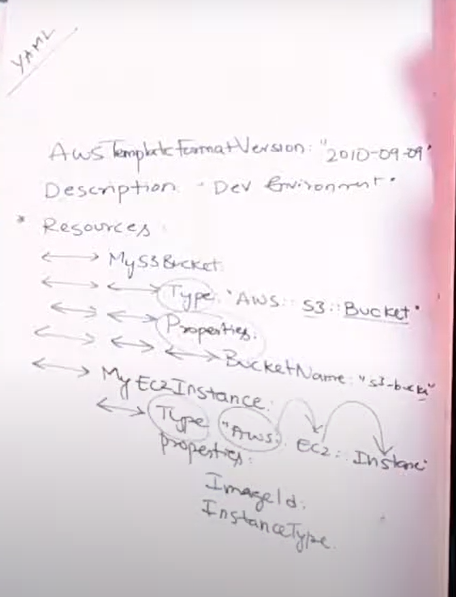 YAML
AWSTemplateFormatVersion: "2010-09-09"
Description: "Dev Environment"
* Resources:
MyS3Bucket:
Type: "AWS::S3::Bucket"
Properties:
BucketName: "s3-bucket"
MyEC2Instance:
Type "Aws:: EC2:: Instance"
properties:
ImageId:
InstanceType